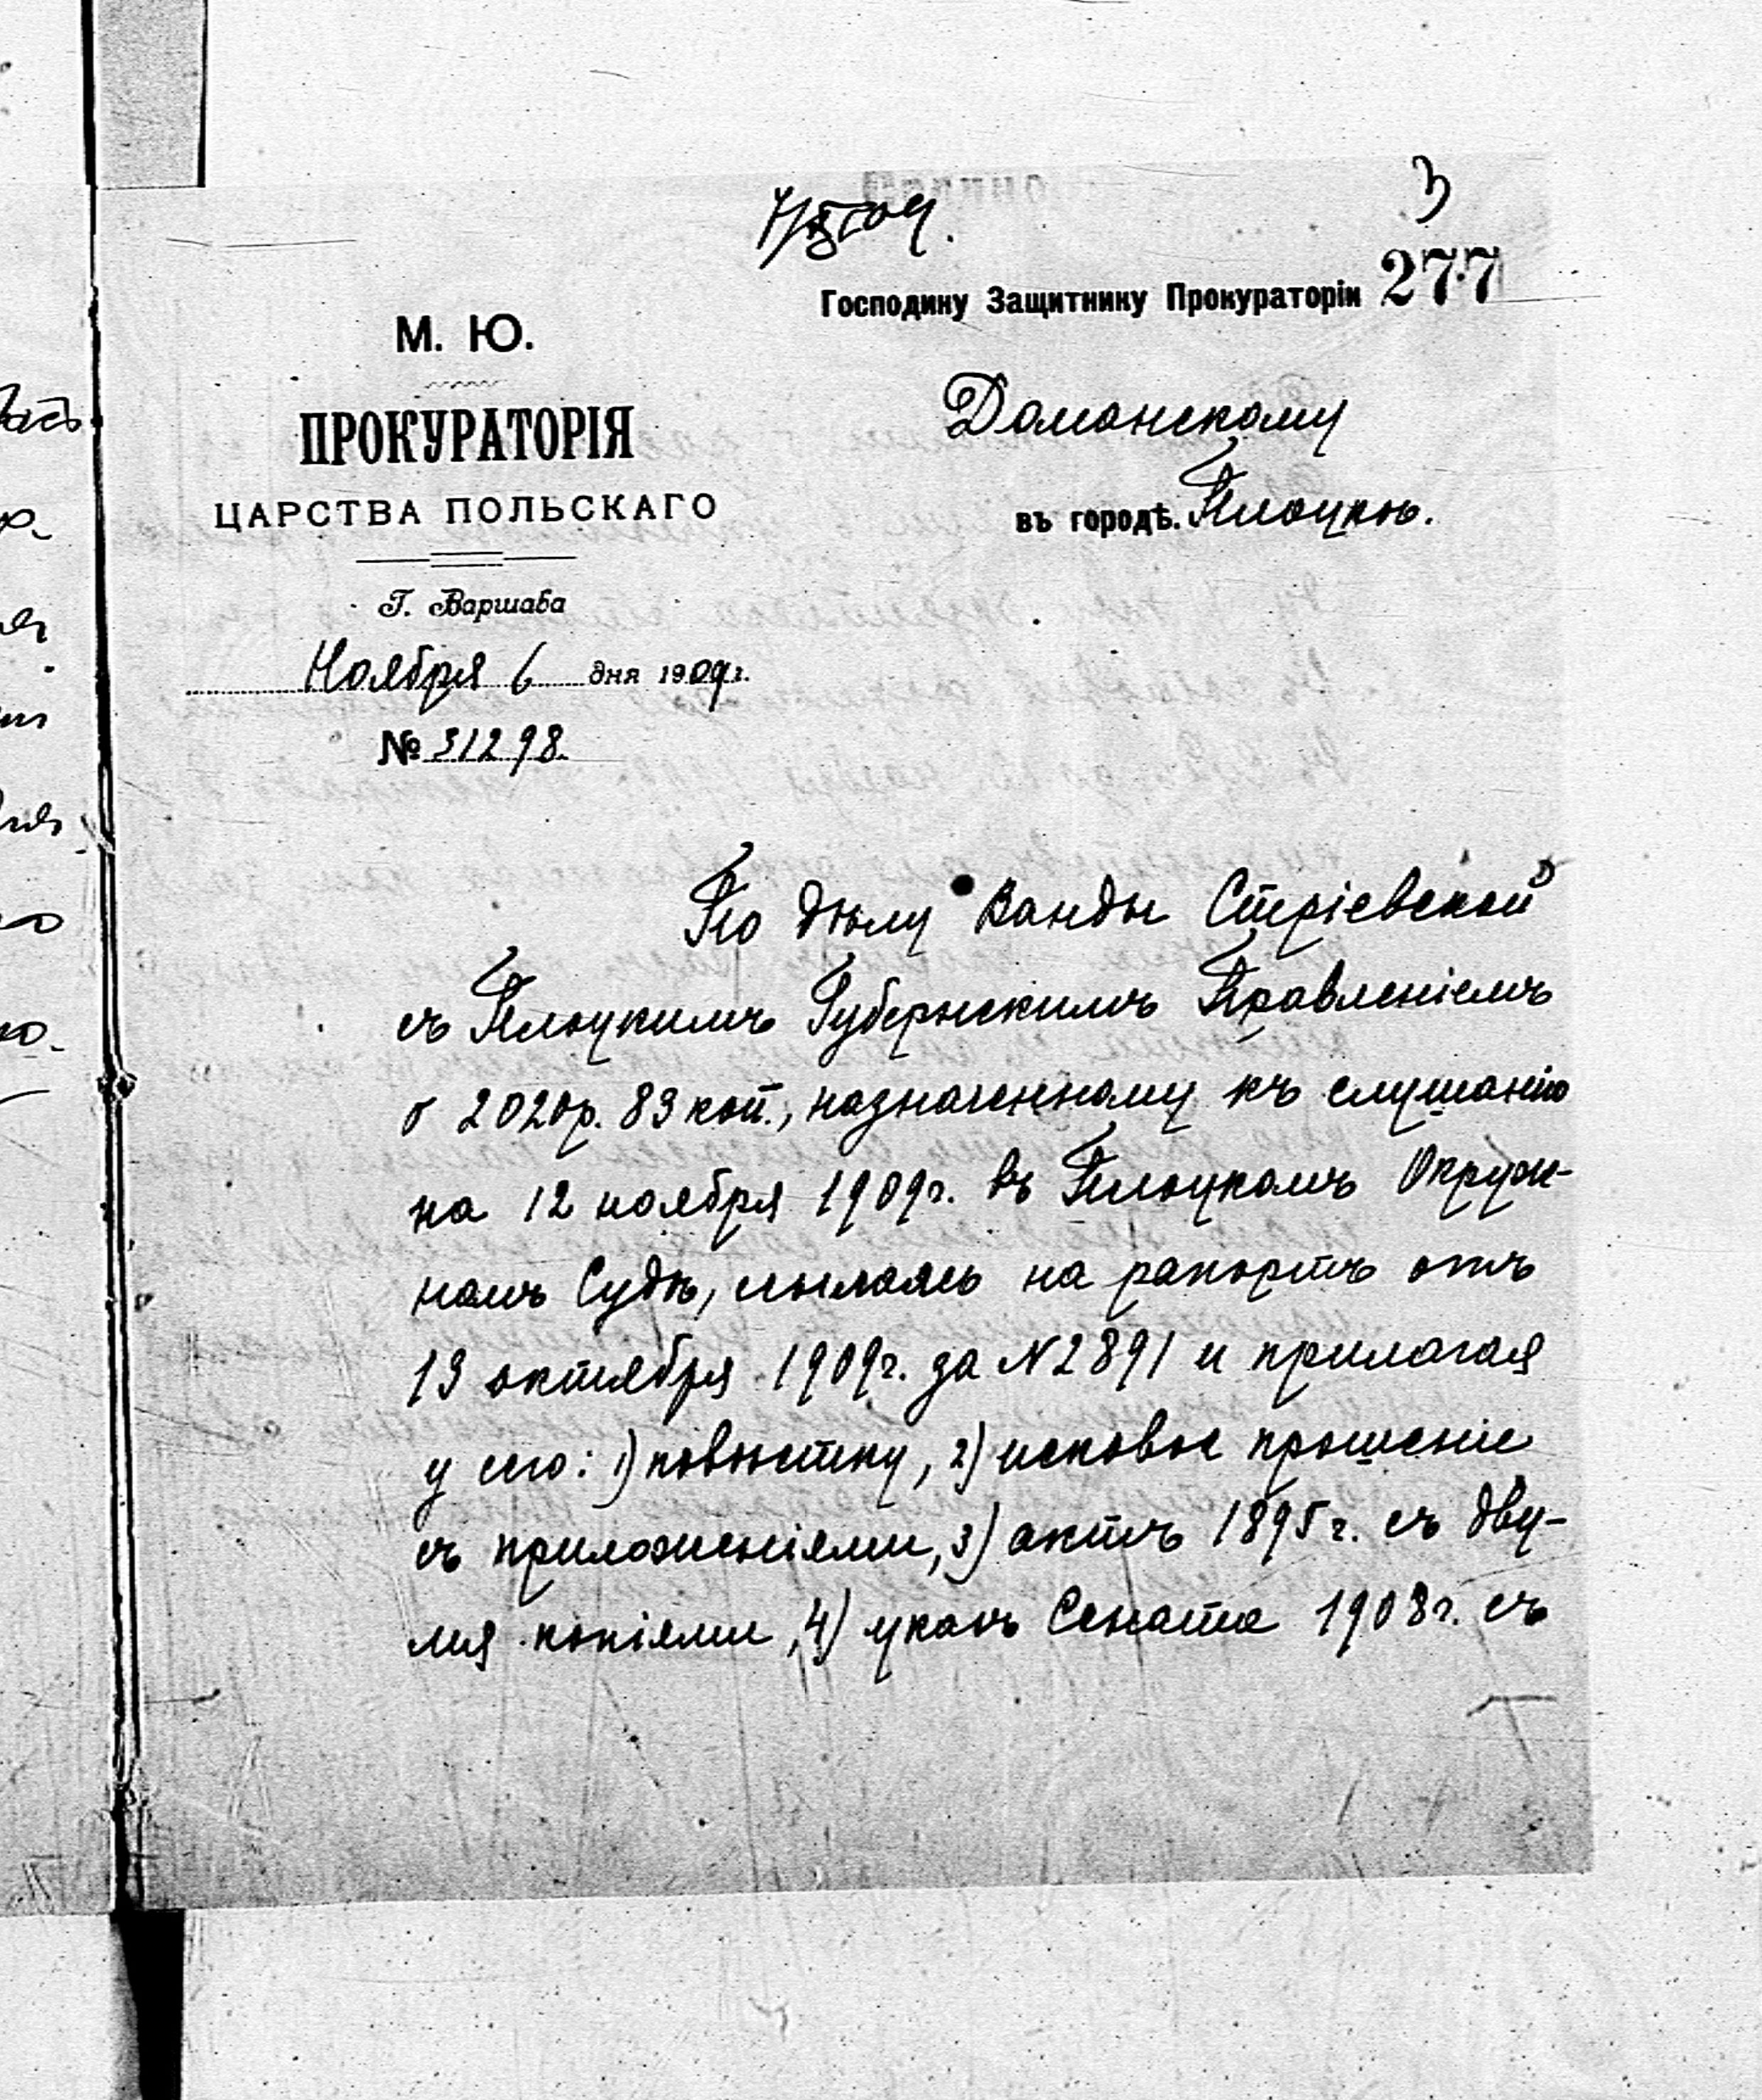 3
277
Господину Защитнику Прокураторіи
М. Ю.
Доманскому
ПРОКУРАТОРІЯ
ЦАРСТВА ПОЛЬСКАГО
въ городѣ. Плоцкѣ.
Г. Варшава
Ноября 6 дня 1909 г.
№ 31298.
По дѣлу Ванды Стріевской
съ Плоцкимъ Губернскимъ Правленіемъ
о 2020р. 83 коп., назначенному къ слушанію
на 12 ноября 1909г. въ Плоцкомъ Окруж-
номъ Судѣ, ссылаясь на рапортъ отъ
13 октября 1909г. за N2891 и прилагая
у сего: 1) повѣстку, 2) исковое прошеніе
съ приложеніями, 3) актъ 1895г. съ дву-
мя копіями, 4) указъ Сената 1908г. съ